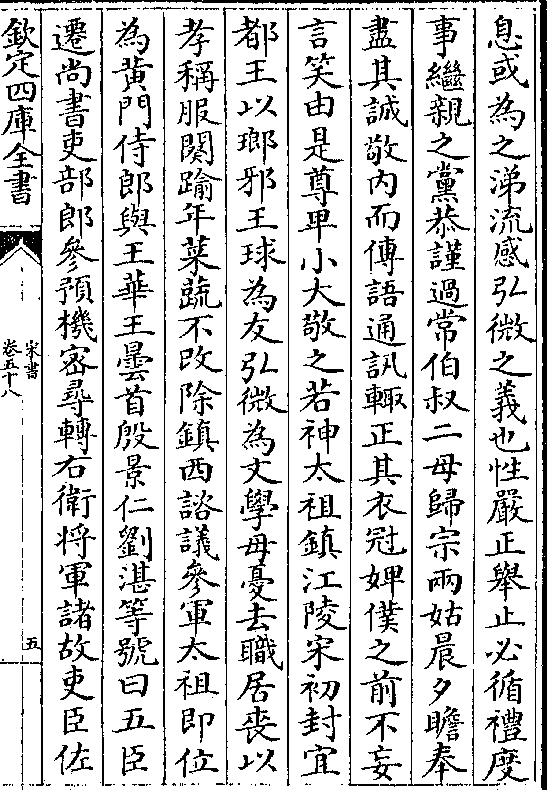 息或為之涕流感弘微之義也性嚴正舉止必循禮度
事繼親之黨恭謹過常伯叔二母歸宗兩姑晨夕瞻奉
盡其誠敬内而傳語通訊輙正其衣冠婢僕之前不妄
言笑由是尊卑小大敬之若神太祖鎮江陵宋初封宜
都王以瑯邪王球為友弘微為文學母憂去職居喪以
孝稱服闋踰年菜蔬不改除鎮西諮議參軍太祖即位
為黃門侍郎與王華王曇首殷景仁劉湛等號曰五臣
遷尚書吏部郎參預機密尋轉右衛將軍諸故吏臣佐
欽定四庫全書
宋書
卷五十八
五